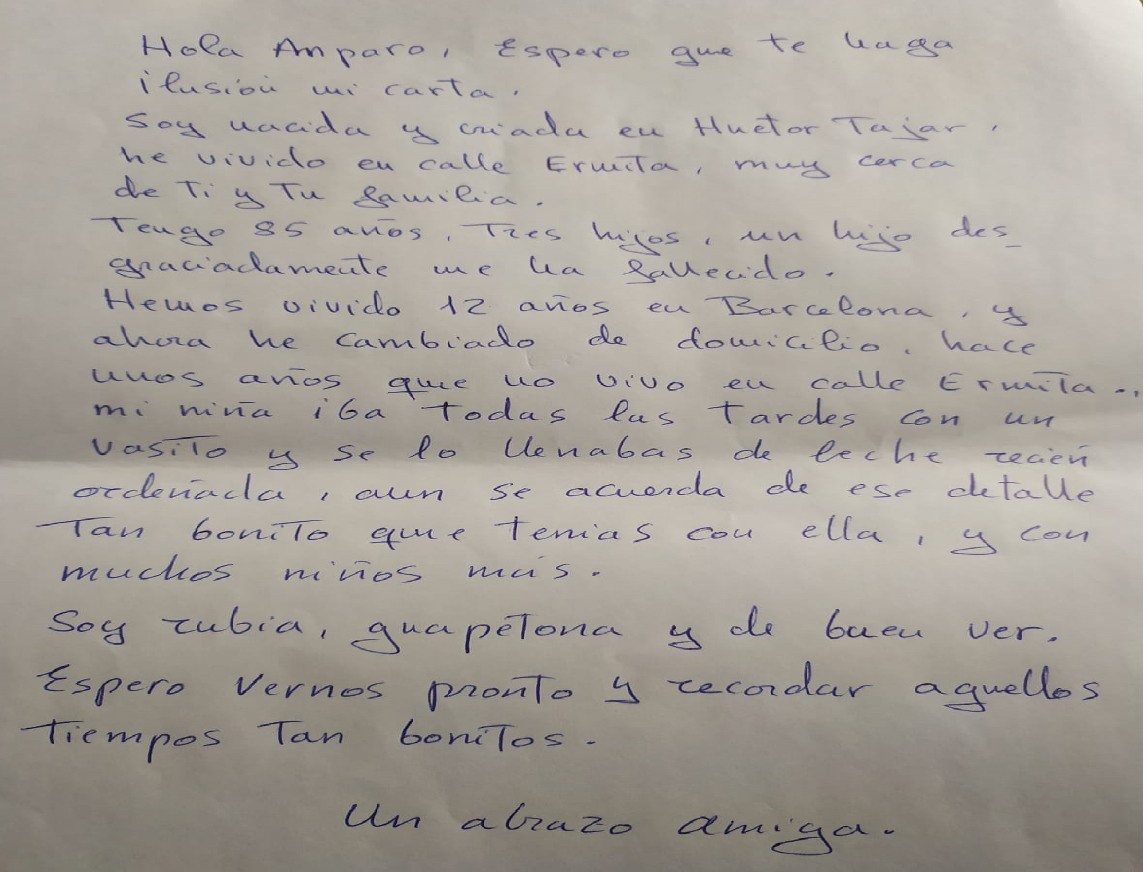 Hola Amparo, Espero que te haga
ilusión mi carta.
Soy nacida y criada en Huetor Tajar,
he vivido en calle Ermita, muy cerca
de Ti y Tu familia.
Tengo 85 años, Tres hijos, un hijo des_
graciadamente me ha fallecido.
Hemos vivido 12 años en Barcelona, y
ahora he cambiado de domicilio, hace
unos años que no vivo en calle Ermita..,
mi niña iba Todas las Tardes con un
vasito y se lo llenabas de leche recien
ordeñada, aun se acuerda de ese detalle
Tan bonito que tenias con ella, y con
muchos niños más.
Soy rubia, guapetona y de buen ver.
Espero vernos pronto y recordar aquellos
Tiempos Tan bonitos.
Un abrazo amiga.